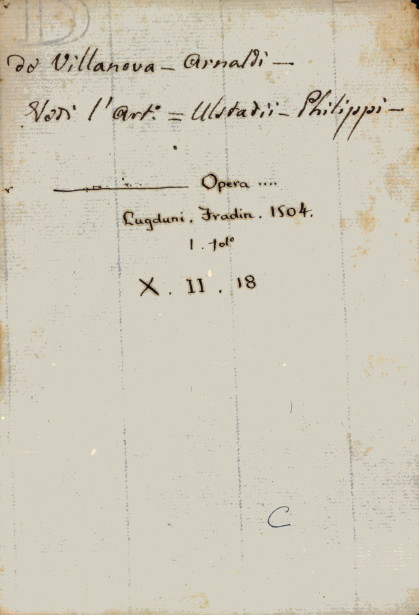 de Villanova - Arnaldi -
Vedi l'Art.º = Ulstadii - Philippi -
Opera ....
Lugduni. Fradin. 1504.
1. folº
X. II. 18
C